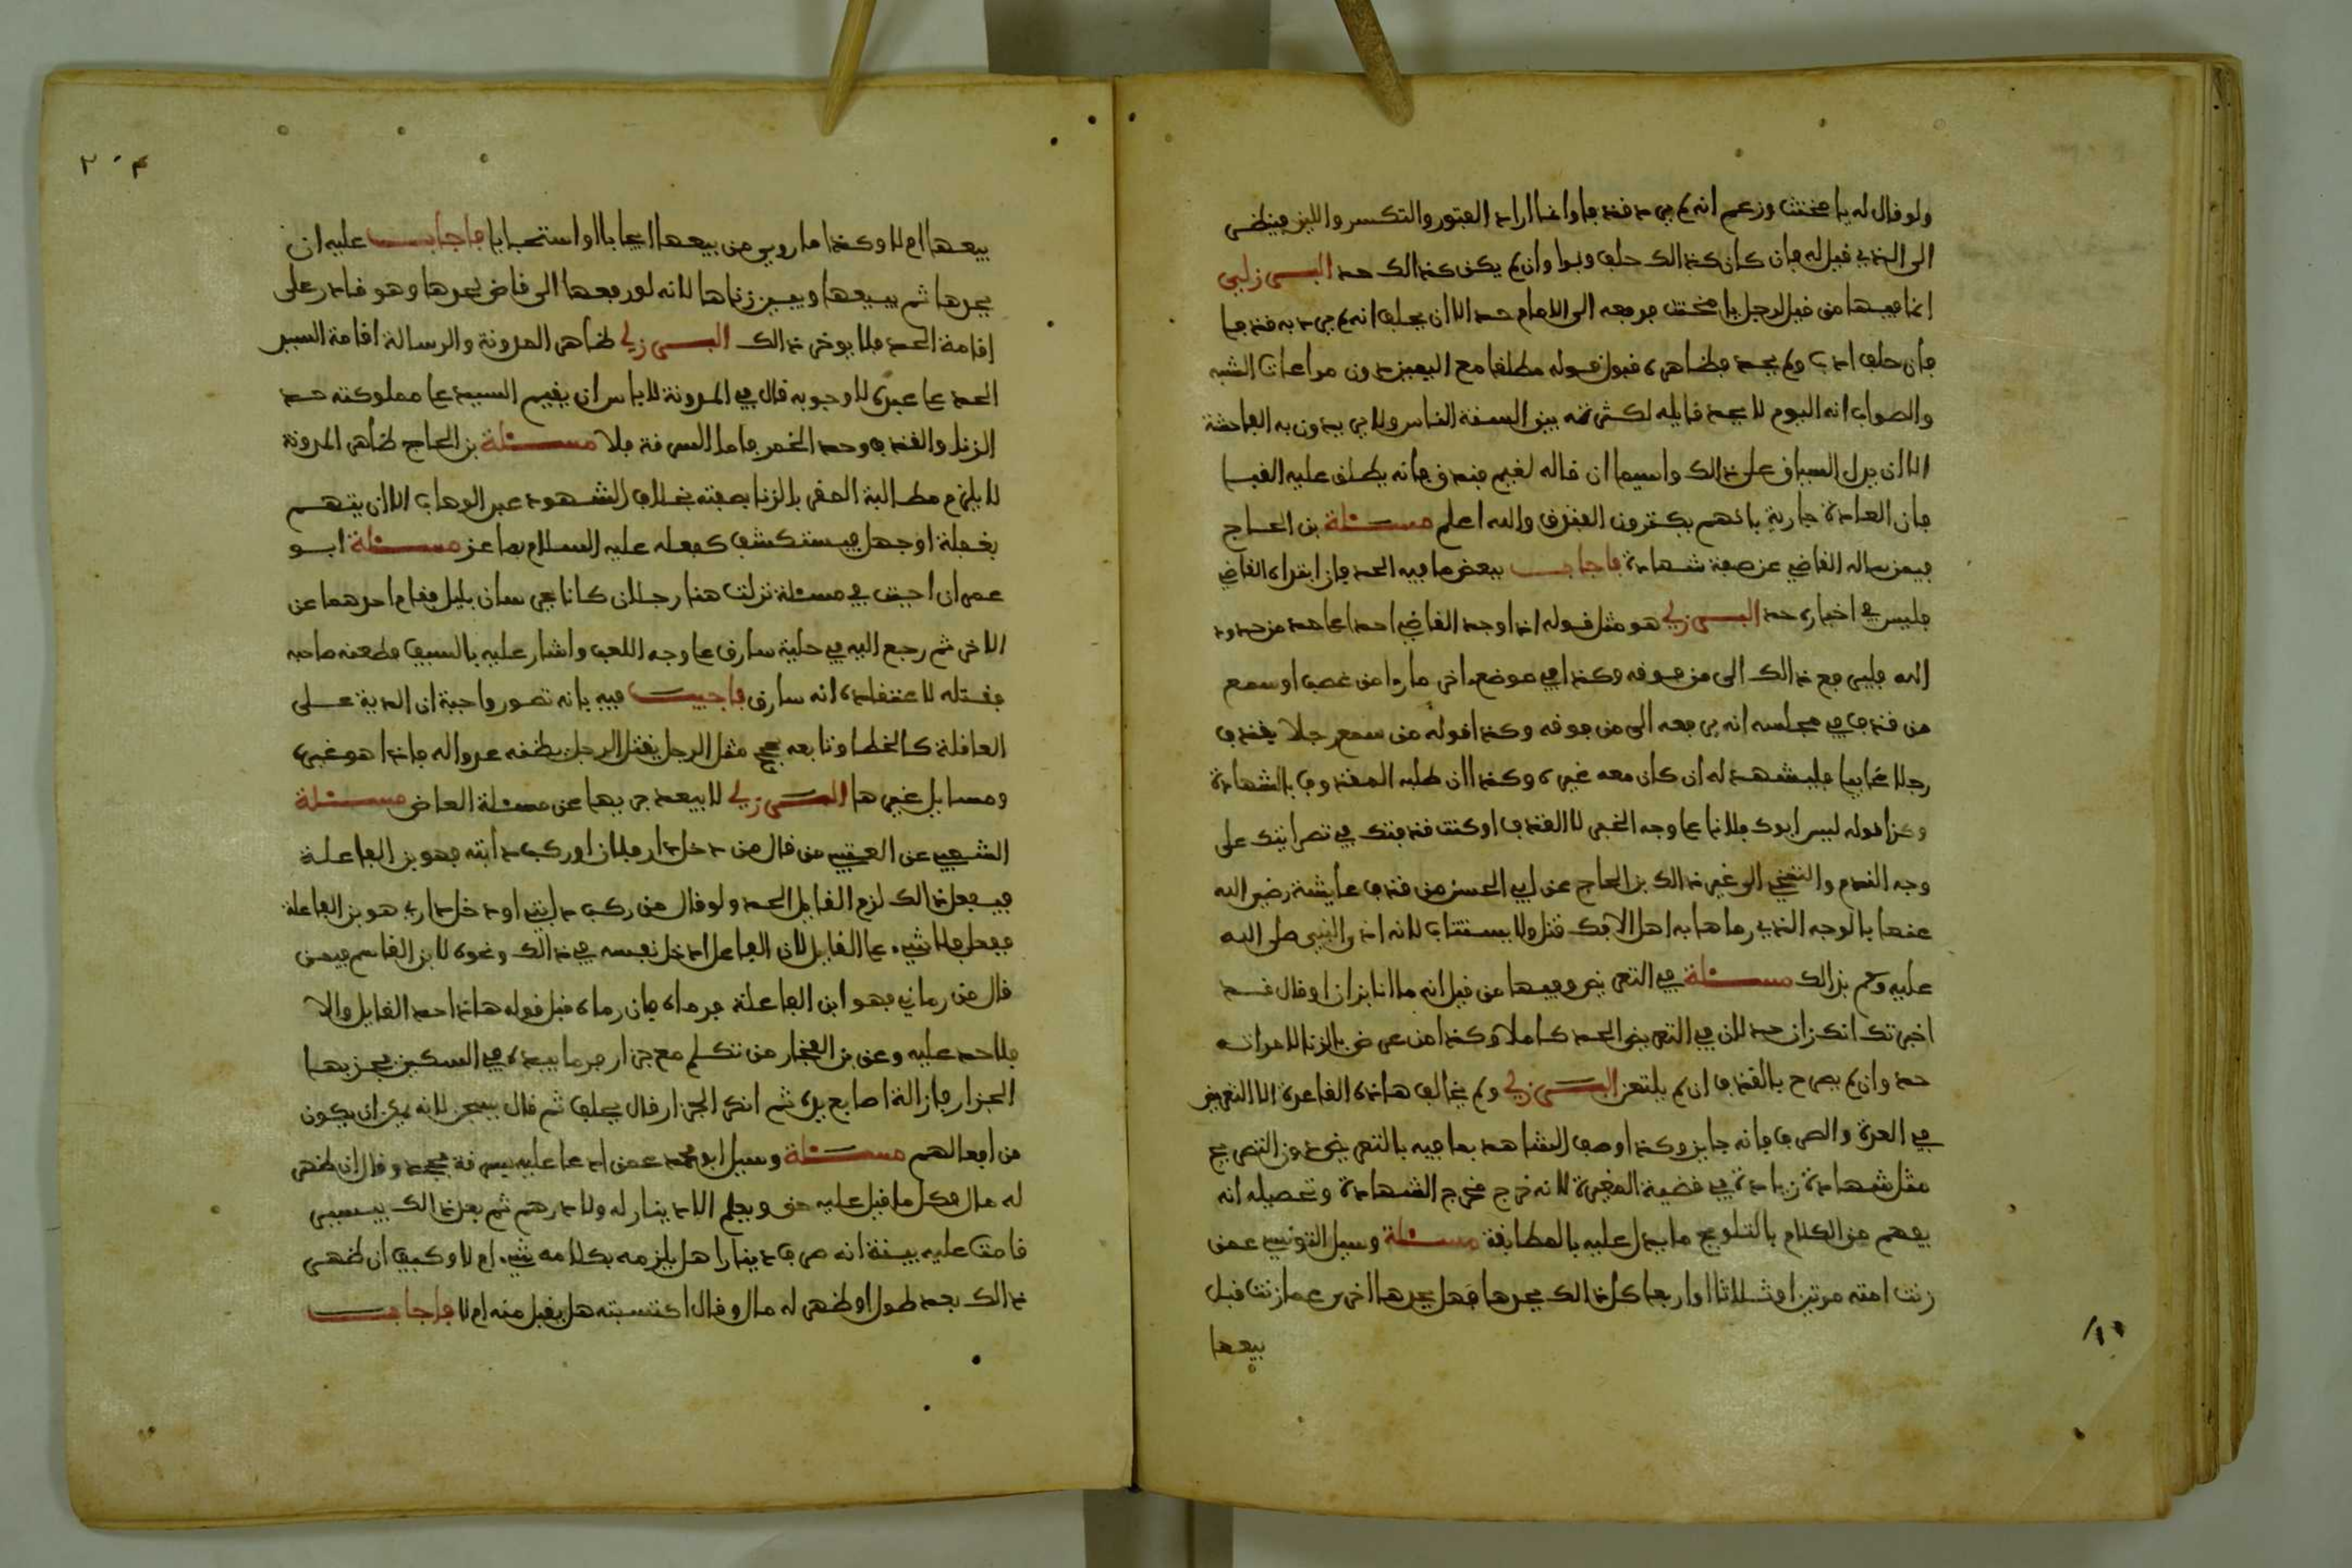 ولو قال له يا مخنث وزعم انه لم يرد قذفا وانما اراد الفتور والتكسر واللين فينظر
الى الذي قيل له فان كان كذالك حلف وبرا وان لم يكن كذالك حد البرزلي
انما فيها من قيل لرجل يا مخنث فرفعه الى الامام حد الا ان يحلف انه لم يرد به قذفا
فان حلف ادب ولم يحد فظاهره قبول قوله مطلقا مع اليمين دون مراعات الشبه
والصواب انه اليوم لا يحد قايله لكثرته بين السنة الناس ولا يريدون به الفاحشة
الا ان يدل السياق على ذالك واسيما ان قاله لغير فانه يطلق عليه
فان العادة جارية بانهم يكثرون القذف والله اعلم مسئلة بن الحاج
فيمن ساله القاضي عن صفة شهادة فاجاب ببعض ما فيه الحد فان ابتداه القاضي
فليس في اخباره حد البرزلي هو مثل قوله اذا وجد القاضي احدا على حد من حدود
الله فليرفع ذالك الى من فوقه وكذا في موضع اخر ما راه من غصب او سمع
من قذف في مجلسه انه يرفعه الى من فوقه وكذا قوله من سمع رجلا يقذف
رجلا غايبا فليشهد له ان كان معه غيره وكذا ان طلبه المقذوف بالشهادة
وكذا قوله ليس ابوك فلانا على وجه الخبر لا القذف او كنت قذفتك في نصرانيتك على
وجه الندم والتبري الى غير ذالك بن الحاج عن ابي الحسن من قذف عائشة رضي الله
عنها بالوجه الذي رماها به اهل الافك قتل ولا يستتاب لانه اذى النبي صلى الله
عليه وسلم بذالك مسئلة في التعريض وفيها من قيل انه ما انا بزان او قال قد
اخبرتك انك زان حد لان في التعريض الحد كاملا وكذا من عرض بالزنا لامراته
حد وان لم يصرح بالقذف ان لم يلتعن البرزلي ولم يخالف هاذه القاعدة الا التعريض
في العدة والصرف فانه جايز وكذا وصف الشاهد بما فيه بالتعريض دون التصريح
مثل شهادة زيادة في قضية المغيرة لانه خرج مخرج الشهادة وتحصيله انه
يفهم من الكلام بالتلويح ما يدل عليه بالمطابقة مسئلة وسيل التونسي عمن
زنت امته مرتين او ثلاثا او اربعا كل ذالك يحدها فهل يحدها اخرى عما زنت قبل
بيعها
٢٠٣
بيعها ام لا وكذا ما روي من بيعها ايجابا او استحبابا فاجاب عليه ان
يحدها ثم يبيعها ويبين زناها لانه لو رفعها الى قاض لحدها وهو قادر على
اقامة الحد فلا يوخر ذالك البرزلي ظاهر المدونة والرسالة اقامة السيد
الحد على عبده لا وجوبه قال في المدونة لا باس ان يقيم السيد على مملوكته حد
الزنا والقذف وحد الخمر فاما السرقة فلا مسئلة بن الحاج ظاهر المدونة
لا يلزم مطالبة المقر بالزنا بصفته بخلاف الشهود عبد الوهاب الا ان يتهم
بغفلة او جهل فيستكشف كفعله عليه السلام بماعز مسئلة ابو
عمران اجبت في مسئلة نزلت هنا رجلان كانا يحرسان بليل فقام احدهما عن
الاخر ثم رجع اليه في حلية سارق على وجه اللعب واشار عليه بالسيف فطعنه صاحبه
فقتله لاعتقاده انه سارق فاجبت فيه بانه تصور واجبة ان الدية على
العاقلة كالخطا وتابعه مثل الرجل يقتل الرجل يظنه عدوا له فاذا هو غيره
ومسايل غيرها البرزلي لا يبعد جريها عن مسئلة العاض مسئلة
الشعبي عن العتبي من قال من دخل دار فلان او ركب دابته فهو بن الفاعلة
فيفعل ذالك لزم القايل الحد ولو قال من ركب دابتي او دخل داري هو بن الفاعلة
ففعل فلا شيء على القايل لان الفاعل ادخل نفسه في ذالك ونحوه لابن القاسم فيمن
قال من رماني فهو ابن الفاعلة فرماه فان رماه قبل قوله هاذا حد القايل والا
فلا حد عليه وعن بن الفخار من تكلم مع جزار فرما بيده في السكين فجز بها
الجزار فازالة اصابع يده ثم انكر الجزار قال يحلف ثم قال لانه يمكن ان يكون
من افعالهم مسئلة وسيل ابو محمد عمن ادعا عليه بسرقة فجحد وقال ان ظهر
له مال فكل ما قيل عليه حق ويعلم الا دينار له ولا درهم ثم بعد ذالك بيسير
قامت عليه بينة انه صرف دينارا هل يلزمه بكلامه شيء ام لا وكيف ان ظهر
ذالك بعد طول او ظهر له مال وقال اكتسبته هل يقبل منه ام لا فاجاب